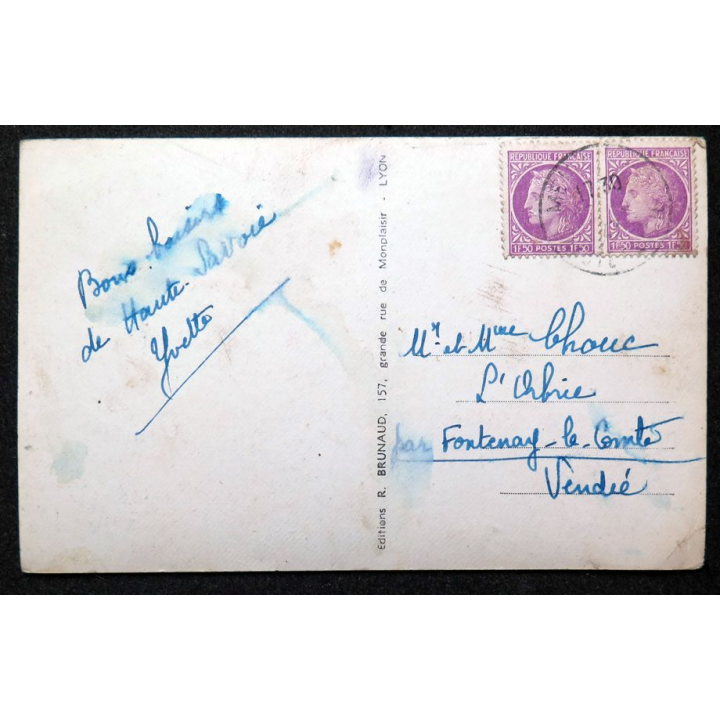 Bons baisers
de Haute-Savoie
Yvette
Editions R. BRUNAUD, 157, grande rue de Monplaisir - LYON
REPUBLIQUE FRANÇAISE
1F50 POSTES 1F50
REPUBLIQUE FRANÇAISE
1F50 POSTES 1F50
Mr et Mme Chouc
L'Orbrie
par Fontenay-le-Comte
Vendée